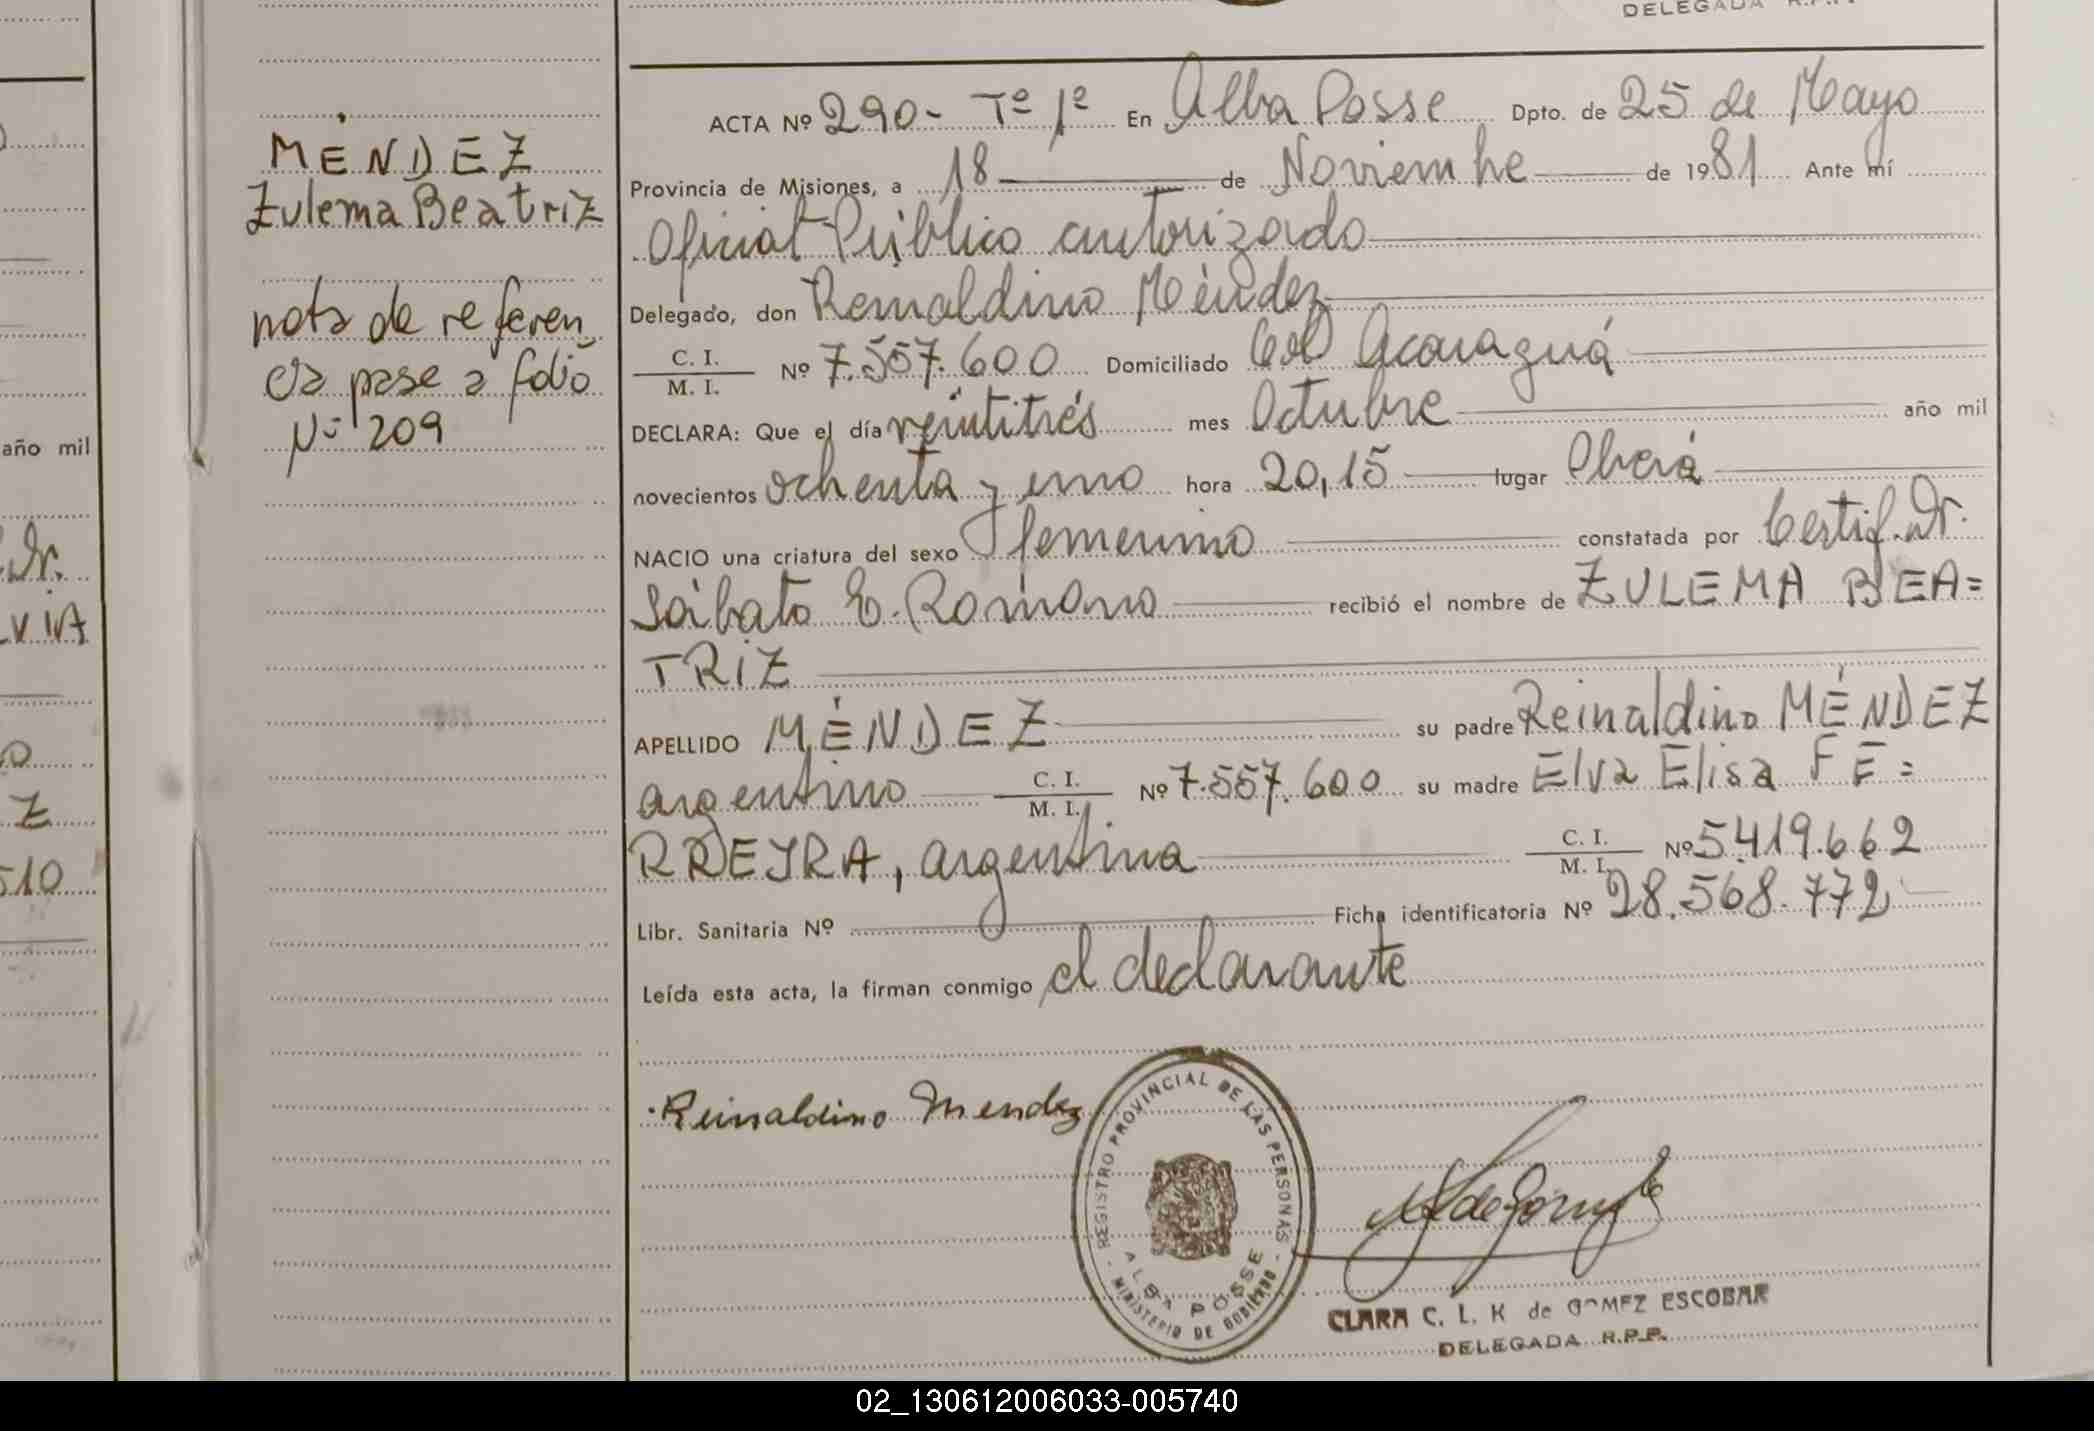 DELEGADA R.P.P.
ACTA Nº 290 - Tº 1º En Alba Posse Dpto. de 25 de Mayo
Provincia de Misiones, a 18 de Noviembre de 1981 Ante mí
Oficial Público autorizado
Delegado, don Reinaldino Méndez
C. I.
M. I.
Nº 7.557.600 Domiciliado Col Acaraguá
DECLARA: Que el día veintitrés mes Octubre año mil
novecientos ochenta y uno hora 20,15 lugar Oberá
NACIO una criatura del sexo femenino constatada por Certif. Dr.
Sábato E. Romano recibió el nombre de ZULEMA BEA=
TRIZ
APELLIDO MÉNDEZ su padre Reinaldino MÉNDEZ
argentino C. I.
M. I.
Nº 7.557.600 su madre Elva Elisa FE=
RREYRA, argentina C. I.
M. I.
Nº 5419.662
Libr. Sanitaria Nº Ficha identificatoria Nº 28.568.772
Leída esta acta, la firman conmigo el declarante
Reinaldino Mendez
REGISTRO PROVINCIAL DE LAS PERSONAS
ALBA POSSE
- MINISTERIO DE GOBIERNO -
CLARA C. L. K de GOMEZ ESCOBAR
DELEGADA R.P.P.
MÉNDEZ
Zulema Beatriz
nota de referen
cia pase a folio
Nº 209
año mil
Dr.
Z
510
02_130612006033-005740